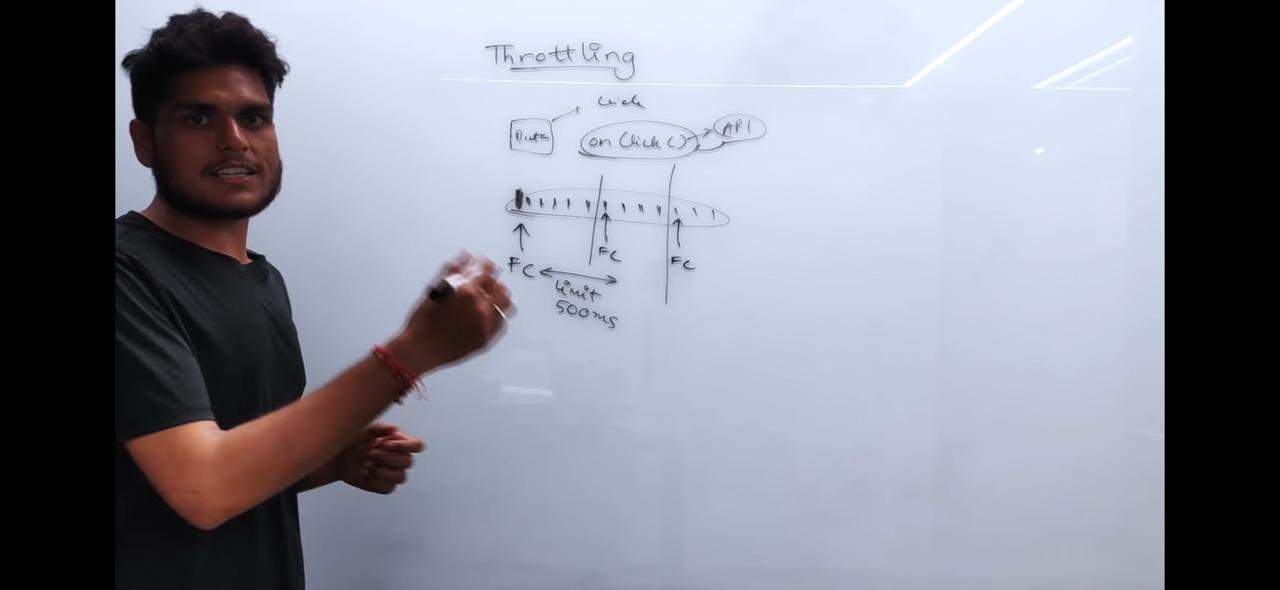 Throttling
Click
Butt
on Click ()
API
FC
FC
FC
limit
500ms